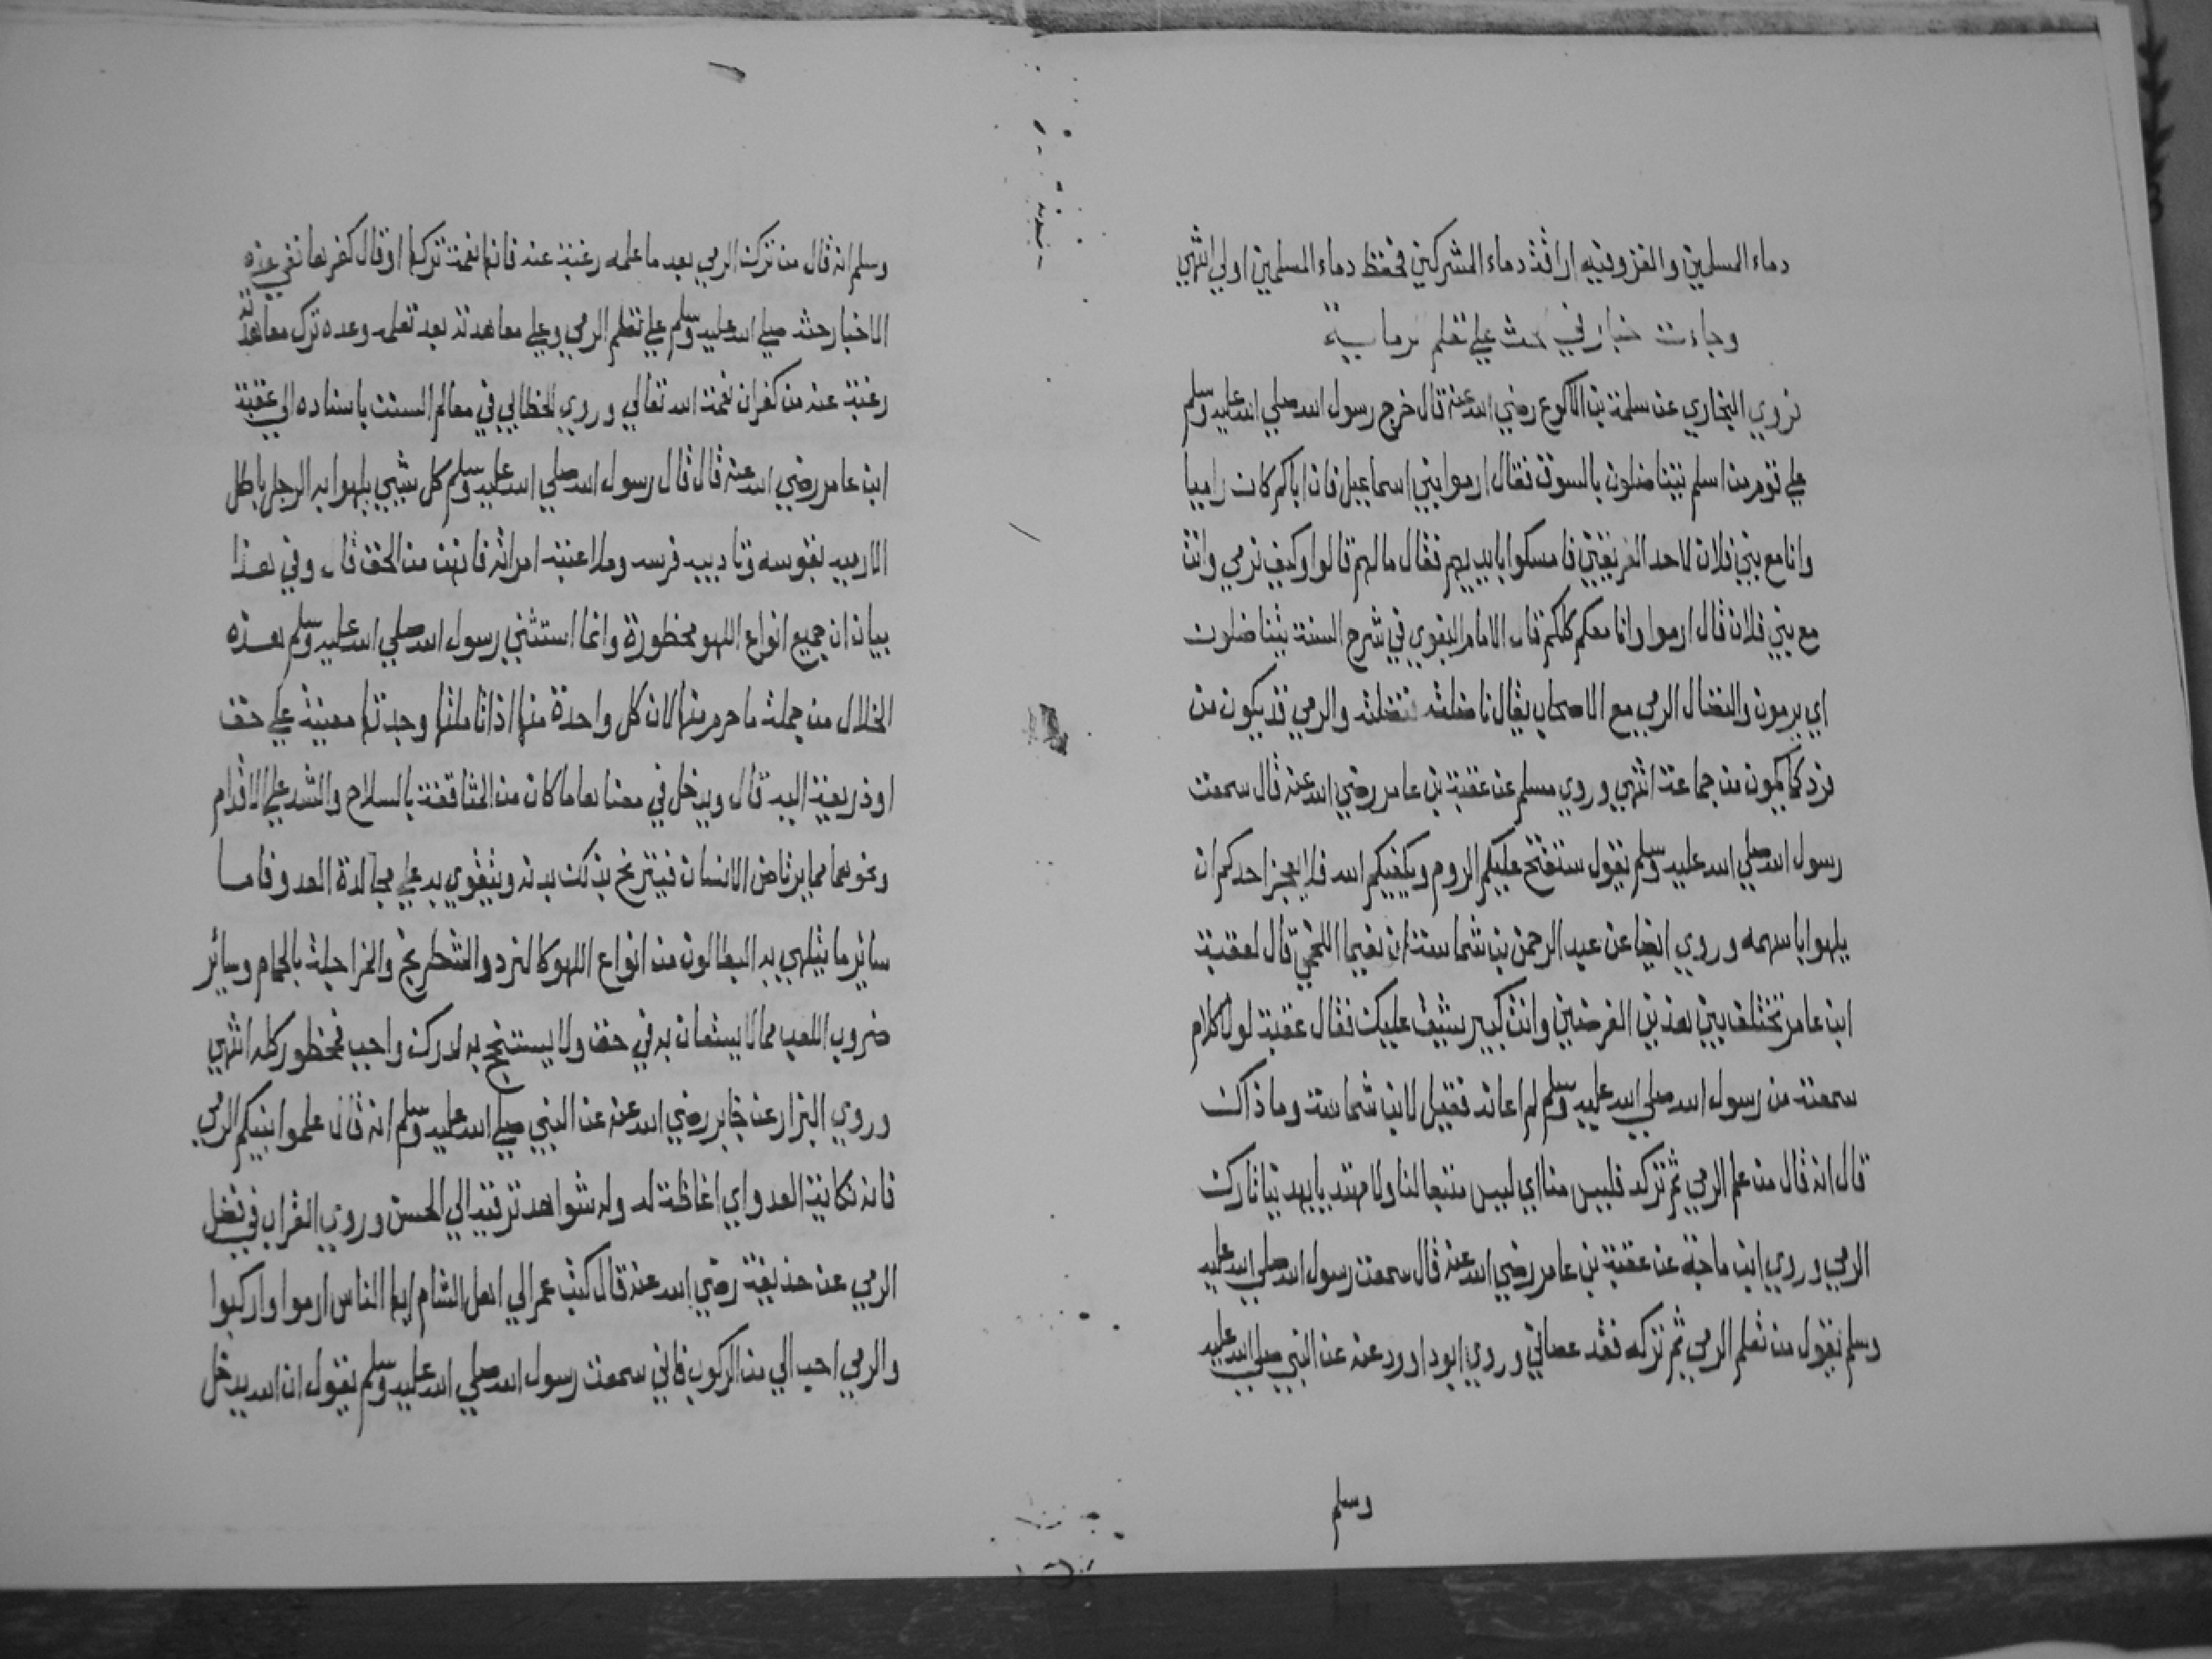 دماء المسلمين والغزو فيه اراقة دماء المشركين فحفظ دماء المسلمين اولي انتهي
وجاءت خبار في حث علي تعلم رماية
فروي البخاري عن سلمة بن الاكوع رضي الله عنه قال خرج رسول الله صلي الله عليه وسلم
علي قوم من اسلم يتناضلون بالسوق فقال ارموا بني اسماعيل فان اباكم كان راميا
وانا مع بني فلان لاحد الفريقين فامسكوا بايديهم فقال مالهم قالوا وكيف نرمي وانت
مع بني فلان قال ارموا وانا معكم كلكم قال الامام البغوي في شرح السنة يتناضلون
اي يرمون والنضال الرمي مع الاصحاب يقال ناضلته فنضلته والرمي قد يكون من
فرد كما يكون من جماعة انتهي وروي مسلم عن عقبة بن عامر رضي الله عنه قال سمعت
رسول الله صلي الله عليه وسلم يقول ستفتح عليكم الروم ويكفيكم الله فلا يعجز احدكم ان
يلهوا باسهمه وروي ايضا عن عبد الرحمن بن شماسة ان نعيما اللخمي قال لعقبة
ابن عامر تختلف بين هذين الغرضين وانت كبير يشق عليك فقال عقبة لولا كلام
سمعته من رسول الله صلي الله عليه وسلم لم اعانه فقيل لابن شماسة وما ذاك
قال انه قال من علم الرمي ثم تركه فليس منا اي ليس متبعا لنا ولا مهتد بايهدينا تارك
الرمي وروي ابن ماجة عن عقبة بن عامر رضي الله عنه قال سمعت رسول الله صلي الله عليه
وسلم يقول من تعلم الرمي ثم تركه فقد عصاني وروي ابو داوود عنه عن النبي صلي الله عليه
وسلم
وسلم انه قال من ترك الرمي بعد ما علمه رغبة عنه فانها نعمة تركها او قال كفرها نفي هذه
الاخبار حثه صلي الله عليه وسلم علي تعلم الرمي وعلي معاهدته بعد تعلمه وعده ترك معاهدته
رغبة عنه من كفران نعمة الله تعالي وروي الخطابي في معالم السنن باسناده الي عقبة
ابن عامر رضي الله عنه قال قال رسول الله صلي الله عليه وسلم كل شيي يلهوا به الرجل باطل
الا رميه بقوسه وتاديبه فرسه وملاعبته امراته فانهن من الحق قال وفي هذا
بيان ان جميع انواع اللهو محظورة وانما استثني رسول الله صلي الله عليه وسلم هذه
الخلال من جملة ما حرم منها لان كل واحدة منها اذا تاملتها وجدتها معينة علي حق
او ذريعة اليه قال ويدخل في معناها ما كان من المثاقفة بالسلاح والشد علي الاقدام
ونحوهما مما يرتاض الانسان فيترنح بذلك بدنه ويتقوي به علي مجالدة العدو فاما
سائر ما يتلهي به البطالون من انواع اللهو كالنرد والشطرنج والمزاجلة بالحمام وسائر
ضروب اللعب مما لا يستعان به في حق ولا يستنجح به لدرك واجب فمحظور كله انتهي
وروي البزار عن جابر رضي الله عنه عن النبي صلي الله عليه وسلم انه قال علموا بنيكم الرمي
فانه نكاية العدو اي اغاظة له وله شواهد ترقيه الي الحسن وروي القراب في فضل
الرمي عن حذيفة رضي الله عنه قال كتب عمر الي اهل الشام ايها الناس ارموا واركبوا
والرمي احب الي من الركوب فاني سمعت رسول الله صلي الله عليه وسلم يقول ان الله يدخل